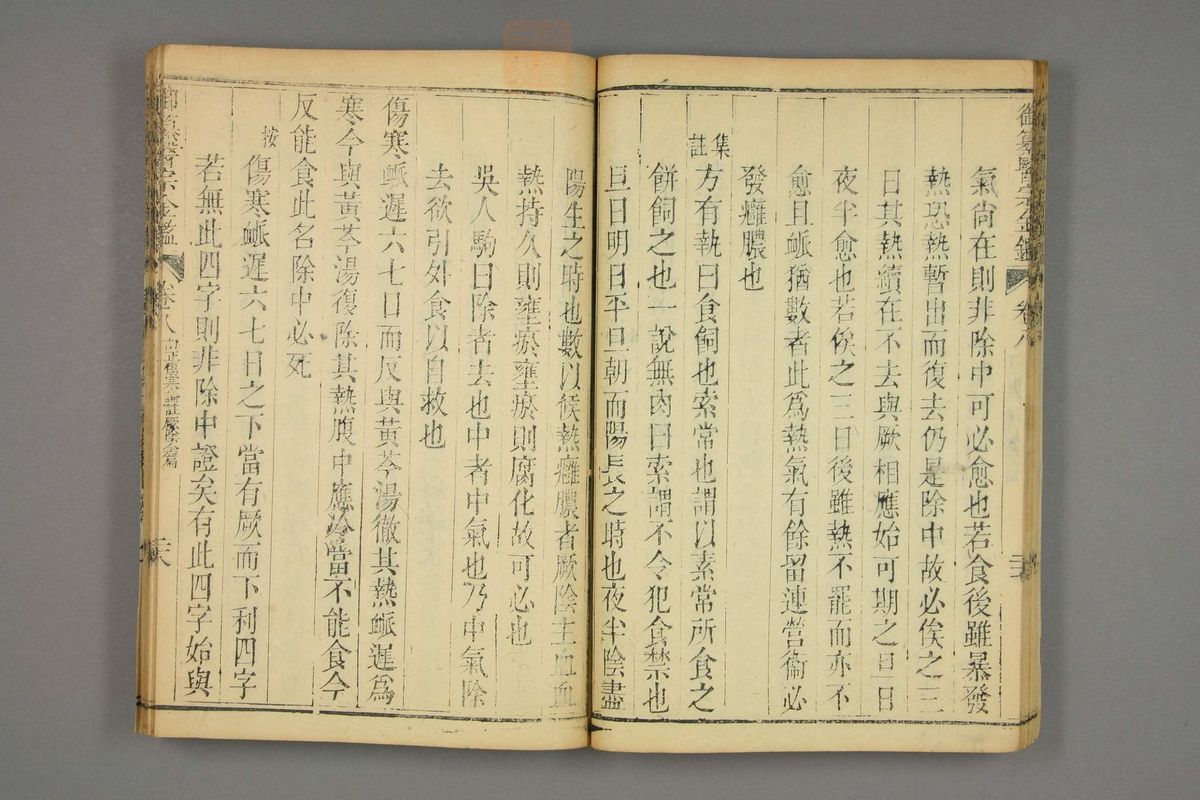 御纂醫宗金鑑 卷八
氣尚在則非除中可必愈也若食後雖暴發
熱恐熱暫出而復去仍是除中故必俟之三
日其熱續在不去與厥相應始可期之旦日
夜半愈也若俟之三日後雖熱不罷而亦不
愈且脈猶數者此爲熱氣有餘留連營衞必
發癰膿也
集註方有執曰食飼也索常也謂以素常所食之
餅飼之也一說無肉曰索謂不令犯食禁也
旦日明日平旦朝而陽長之時也夜半陰盡
陽生之時也數以候熱癰膿者厥陰主血血
熱持久則壅瘀壅瘀則腐化故可必也
吳人駒曰除者去也中者中氣也乃中氣除
去欲引外食以自救也
傷寒脈遲六七日而反與黃芩湯徹其熱脈遲爲
寒今與黃芩湯復除其熱腹中應冷當不能食今
反能食此名除中必死
按傷寒脈遲六七日之下當有厥而下利四字
若無此四字則非除中證矣有此四字始與
御纂醫宗金鑑 卷八 訂正傷寒論註厥陰全篇 二六